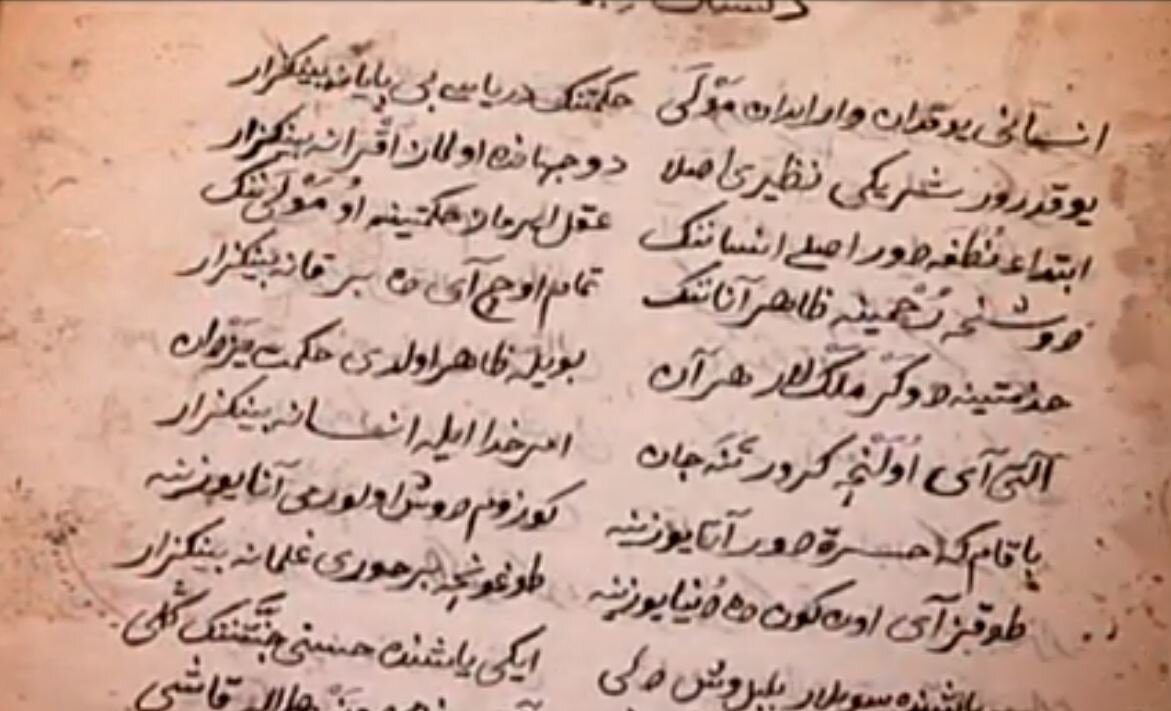 انسانی یوقدان وار ایدان مَوْلَی حکمتنک دریاسی بی پایانه بینکزار
یوقدرور شریکی نظیری اصلا دو جهانده اولمان اقرانه بینکزار
ابتداء نُطْفَه دور اصلی انساننک عقل ایرماز حکمتینه اُو مَوْلَی ننک
دوشنجه رَحْمینه ظاهر آناننک تمام اوچ آی ده بر قانه بینکزار
خدمتینه دوکَر مَلَک لار هر آن بویله ظاهر اولدی حکمت یزدان
آلتی آی اُولَنْچَه کرور تَنَه جان امر خدا ایله انسانه بینکزار
باقام که حسرة دور آتا یوزینه کوزوم دوش اولوری آنا یوزینه
طوقز آی اون کون ده دُنیا یوزینه طوغونچه بر حوری غلمانه بینکزار
یاشنده سویلار بلبل وش دلی ایکی یاشنده حسنی جَنَّتننک کُلی
هلال قاشی